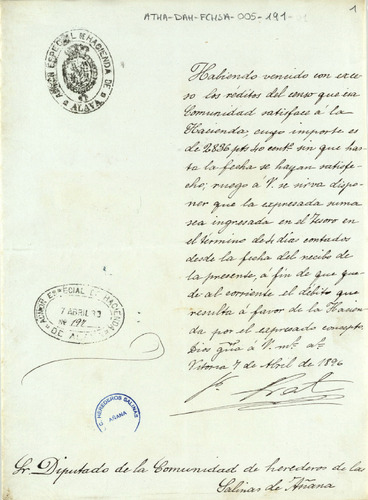 ATHA-DAH-FCHSA-005-191-
1
ADMON ESPECIAL DE HACIENDA DE
ALAVA
Habiendo vencido con exce
so los réditos del censo que esa
Comunidad satisface á la
Hacienda, cuyo importe es
de 2836 pts 40 centº sin que has
ta la fecha se hayan satisfe
cho; ruego á V. se sirva dispo
ner que la expresada suma
sea ingresada en el Tesoro en
el término de 4 dias contados
desde la fecha del recibo de
la presente, á fin de que que
de al corriente el débito que
resulta á favor de la Hacien
da por el expresado concepto
Dios gue á V. ms. as.
Vitoria 7 de Abril de 1896
ADMON ESPECIAL DE HACIENDA
7 ABRIL
Nº 197
DE ALAVA
C. HEREDEROS SALINAS
AÑANA
Sr. Diputado de la Comunidad de herederos de las
Salinas de Añana